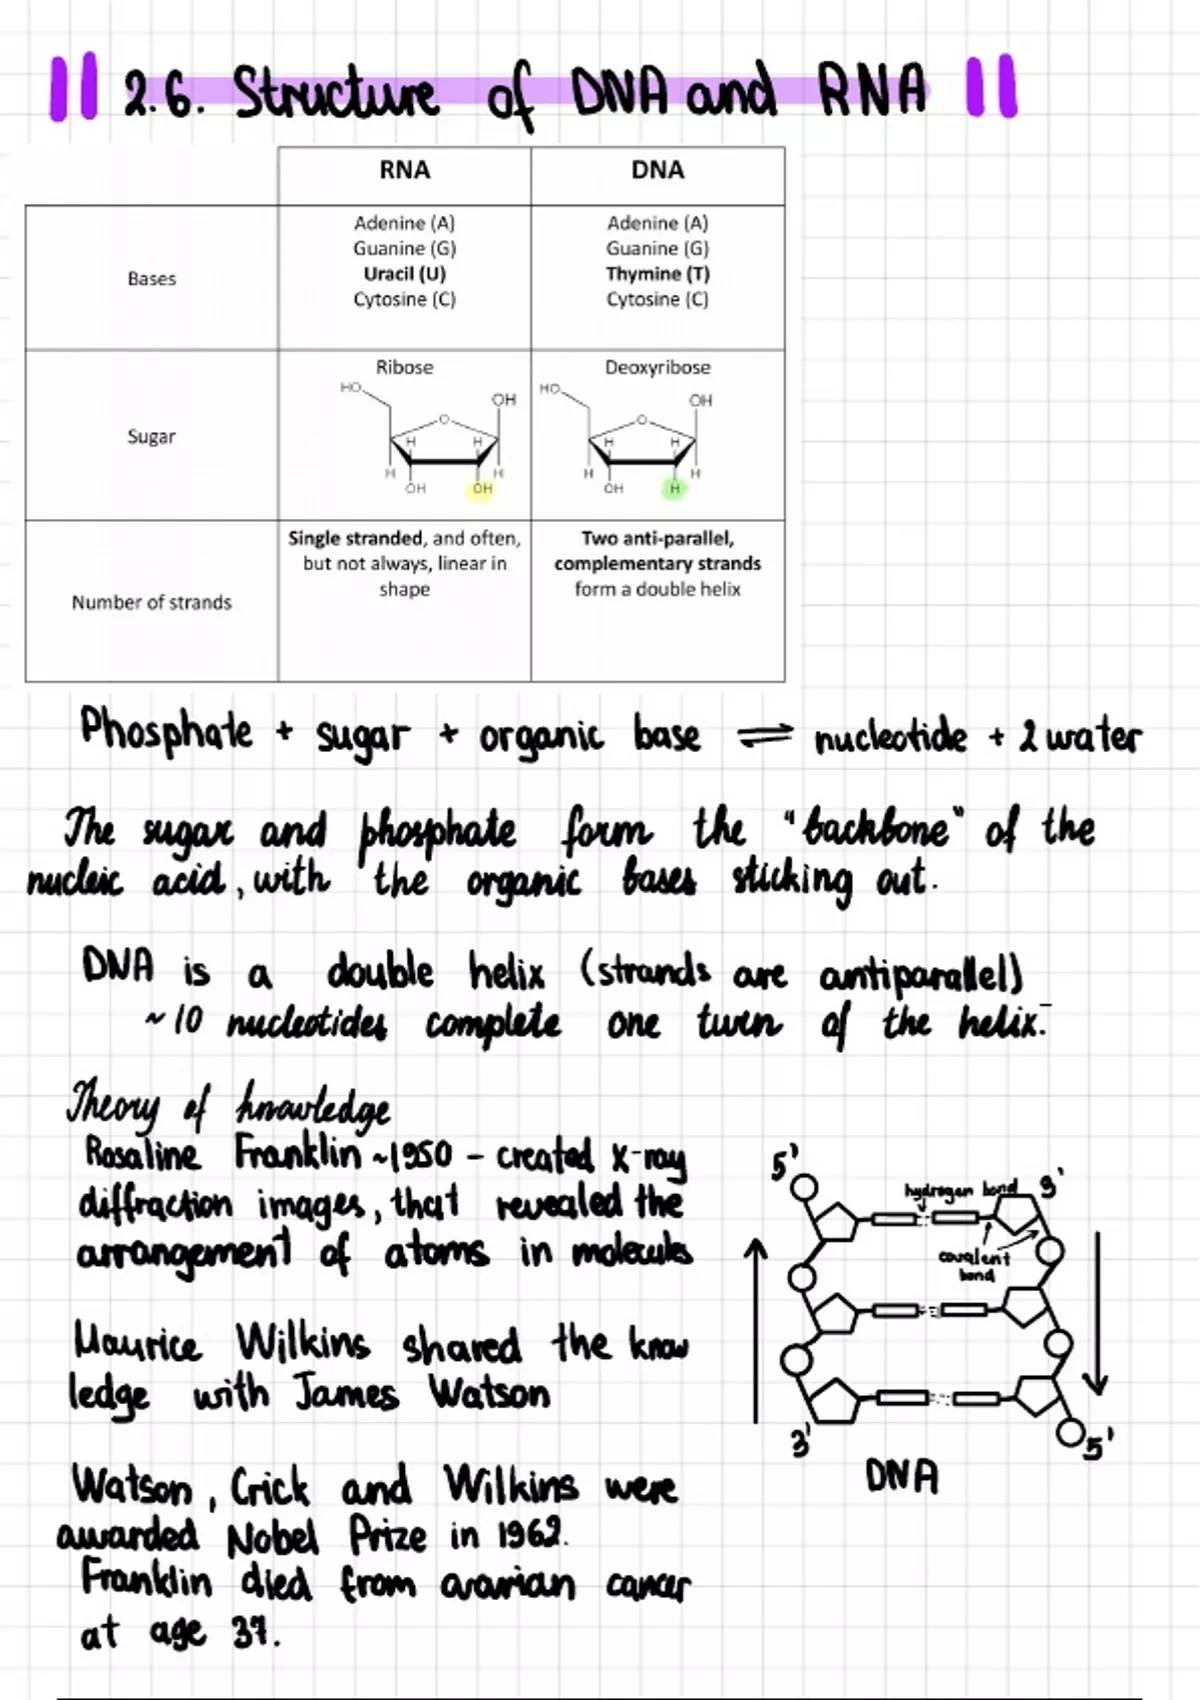 2.6. Structure of DNA and RNA
RNA DNA
Bases
Adenine (A)
Guanine (G)
Uracil (U)
Cytosine (C)
Adenine (A)
Guanine (G)
Thymine (T)
Cytosine (C)
Sugar
Ribose
HO
OH
O
H H
H H
OH OH
Deoxyribose
HO
OH
O
H H
H H
OH H
Number of strands
Single stranded, and often,
but not always, linear in
shape
Two anti-parallel,
complementary strands
form a double helix
Phosphate + sugar + organic base ⇌ nucleotide + 2 water
The sugar and phosphate form the "backbone" of the
nucleic acid, with the organic bases sticking out.
DNA is a double helix (strands are antiparallel)
~10 nucleotides complete one turn of the helix.
Theory of knowledge
Rosaline Franklin ~1950 - created X-ray
diffraction images, that revealed the
arrangement of atoms in molecules
Maurice Wilkins shared the know
ledge with James Watson
Watson, Crick and Wilkins were
awarded Nobel Prize in 1962.
Franklin died from ovarian cancer
at age 37.
5'
hydrogen bond
3'
covalent
bond
3'
5'
DNA